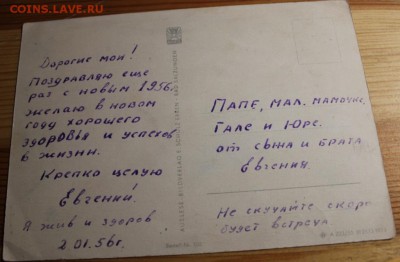 COINS.LAVE.RU
Дорогие мои!
Поздравляю еще
раз с новым 1956г.
желаю в новом
году хорошего
здоровья и успехов
в жизни.
Крепко целую
Евгений.
Я жив и здоров
2 01.56г.
Папе, мал. мамочке,
Гале и Юре.
от сына и брата
Евгения.
Не скучайте скоро
будет встреча